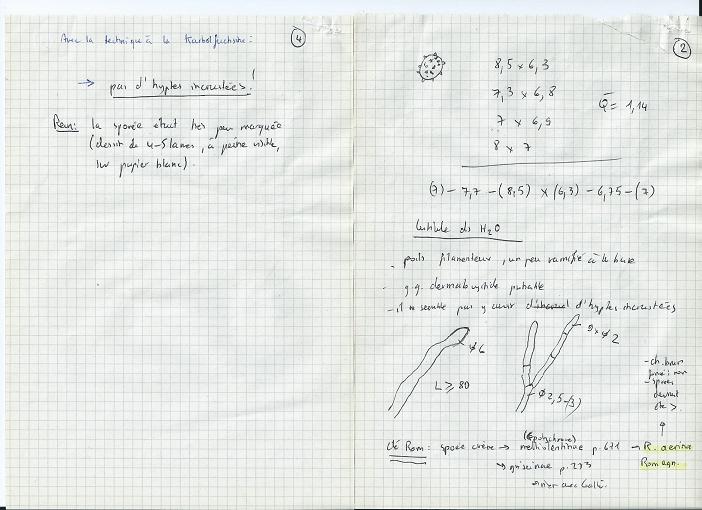 Avec la technique à la Karbolfuchsine :
4
→ pas d'hyphes incrustées !
Rem : la sporée était très peu marquée
(dessin de 4-5 lames, à peine visible,
sur papier blanc).
2
8,5 x 6,3
7,3 x 6,8
7 x 6,9
8 x 7
Q = 1,14
(7) - 7,7 - (8,5) x (6,3) - 6,75 - (7)
Cuticule ds H2O
- poils filamenteux, un peu ramifié à la base
- q.q. dermatocystide probable
- il ne semble pas y avoir d'hyphes incrustées
φ6
L ≥ 80
φ 2
φ 2,5-(3)
- spores
devraient
être >
Clé Rom : sporée crème → p. 671 → R. aerina
Romagn.
→ griseinae p. 273